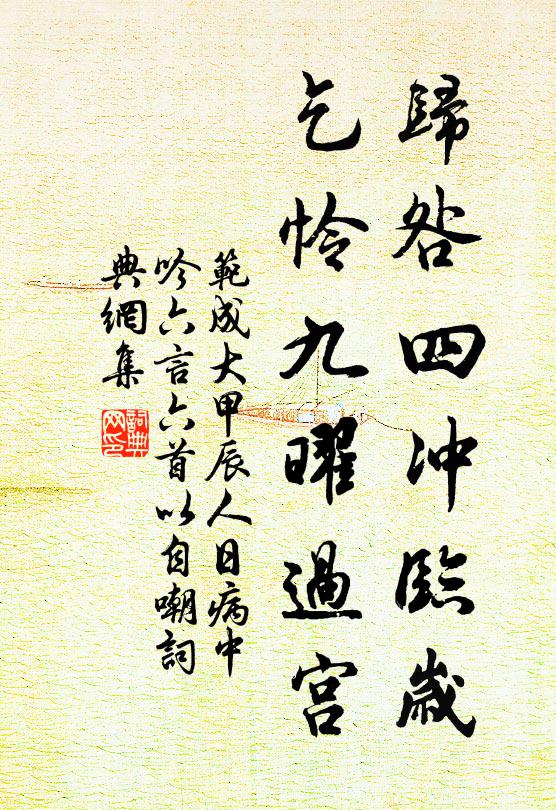 歸咎四冲臨歲
乞憐九曜過宮
範成大甲辰人日病中
吟六言六首以自嘲詞
典網集
詞典
网印